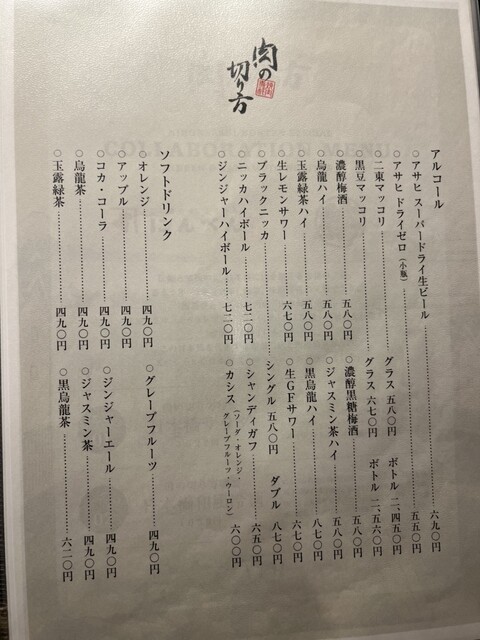 肉の
切り方
アルコール
○アサヒ スーパードライ生ビール 六九〇円
○アサヒ ドライゼロ（小瓶） 五五〇円
○二東マッコリ グラス 五八〇円 ボトル 二、四五〇円
○黒豆マッコリ グラス 六七〇円 ボトル 二、五六〇円
○濃醇梅酒 五八〇円 ○濃醇黒糖梅酒 五八〇円
○烏龍ハイ 五八〇円 ○ジャスミン茶ハイ 五八〇円
○玉露緑茶ハイ 五八〇円 ○黒烏龍ハイ 八七〇円
○生レモンサワー 六七〇円 ○生GFサワー 六七〇円
○ブラックニッカ シングル 五八〇円 ダブル 八七〇円
○ニッカハイボール 七二〇円 ○シャンディガフ 六五〇円
○ジンジャーハイボール 七二〇円 ○カシス（ソーダ・オレンジ・グレープフルーツ・ウーロン） 六〇〇円
ソフトドリンク
○オレンジ 四九〇円 ○グレープフルーツ 四九〇円
○アップル 四九〇円
○コカ・コーラ 四九〇円 ○ジンジャーエール 四九〇円
○烏龍茶 四九〇円 ○ジャスミン茶 四九〇円
○玉露緑茶 四九〇円 ○黒烏龍茶 六二〇円